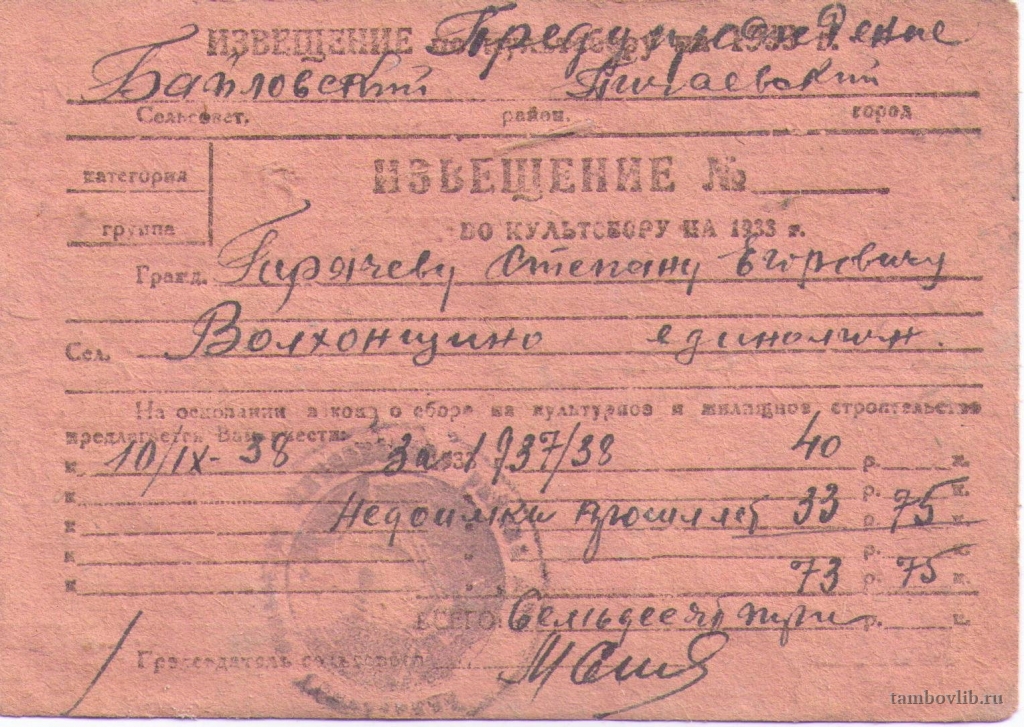 ИЗВЕЩЕНИЕ Предупреждение 1933 г.
Байловский Пичаевский
Сельсовет, район, город
категория
ИЗВЕЩЕНИЕ №
группа
ПО КУЛЬТСБОРУ НА 1933 г.
Гражд. Горячеву Степану Егоровичу
Сел. Волхонщино единоличн.
На основании закона о сборе на культурное и жилищное строительство
предлагается Вам внести:
к 10/IX-38 за 1937/38 40 р. к.
к р. к.
к Недоимки прошл лет 33 р. 75 к.
к р. к.
к 73 р. 75 к.
ВСЕГО Семьдесят три р. к.
Председатель сельсовета
tambovlib.ru